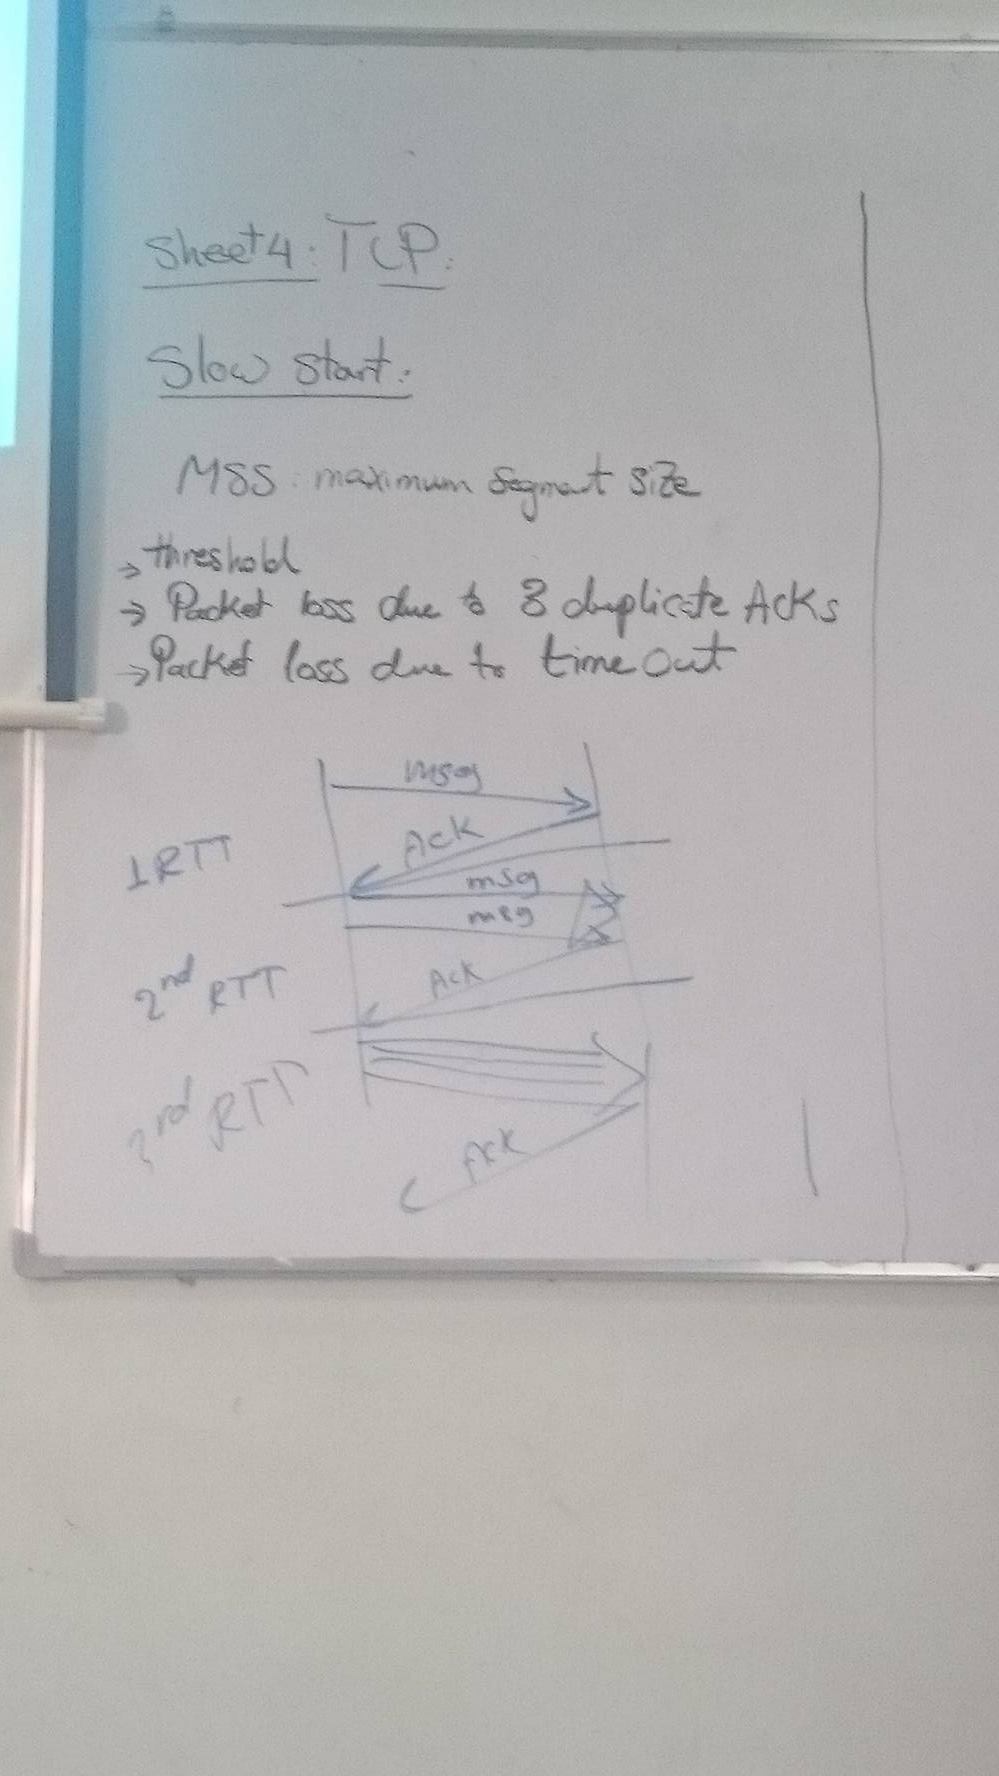 Sheet4: TCP:
Slow Start:
MSS: maximum Segment Size
→ threshold
→ Packet loss due to 3 duplicate Acks
→ Packet loss due to time out
msg
Ack
1 RTT
msg
msg
Ack
2nd RTT
3rd RTT
Ack